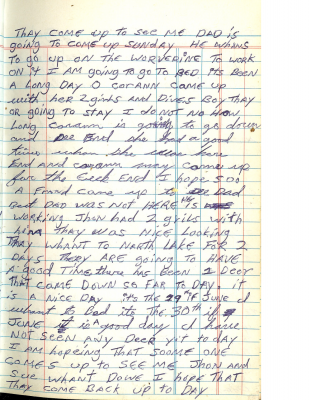 THAY COME UP TO SEE ME DAD is
going TO COME UP SUNDAY HE WHANS
TO go UP ON THE WOLVERINE TO WORK
ON it I AM going TO go TO BED its BEEN
A LONG DAY O CORANN CAME UP
with her 2 girls and DIVES BOY THAY
OR going TO STAY I DO NOT NO HOW
LONG corann is going to go down
and END she had a good
time when she
END and corann may come up
for the Eeek END I hope soo
A FOEND came up to see DAD
But DAD WAS NOT HERE is
WORKING JHON HAD 2 girls with
him THAY WAS NICE LOOKING
THAY WHANT TO NORTH LAKE FOR 2
DAYS THERE ARE going TO HAVE
A good TIME there has BEEN 1 DEER
THAT COME DOWN SO FAR TO DAY. it
is A NICE DAY its THE 29 OF JUNE I
whant to Dad its the 30th if
JUNE it is A good day I have
NOT SEEN ANY DEER yit to day
I AM hopeing THAT SOOME ONE
COMES UP TO SEE ME JHON AND
SUE WHANT DOWE I hope THAT
THEY COME BACK UP TO DAY